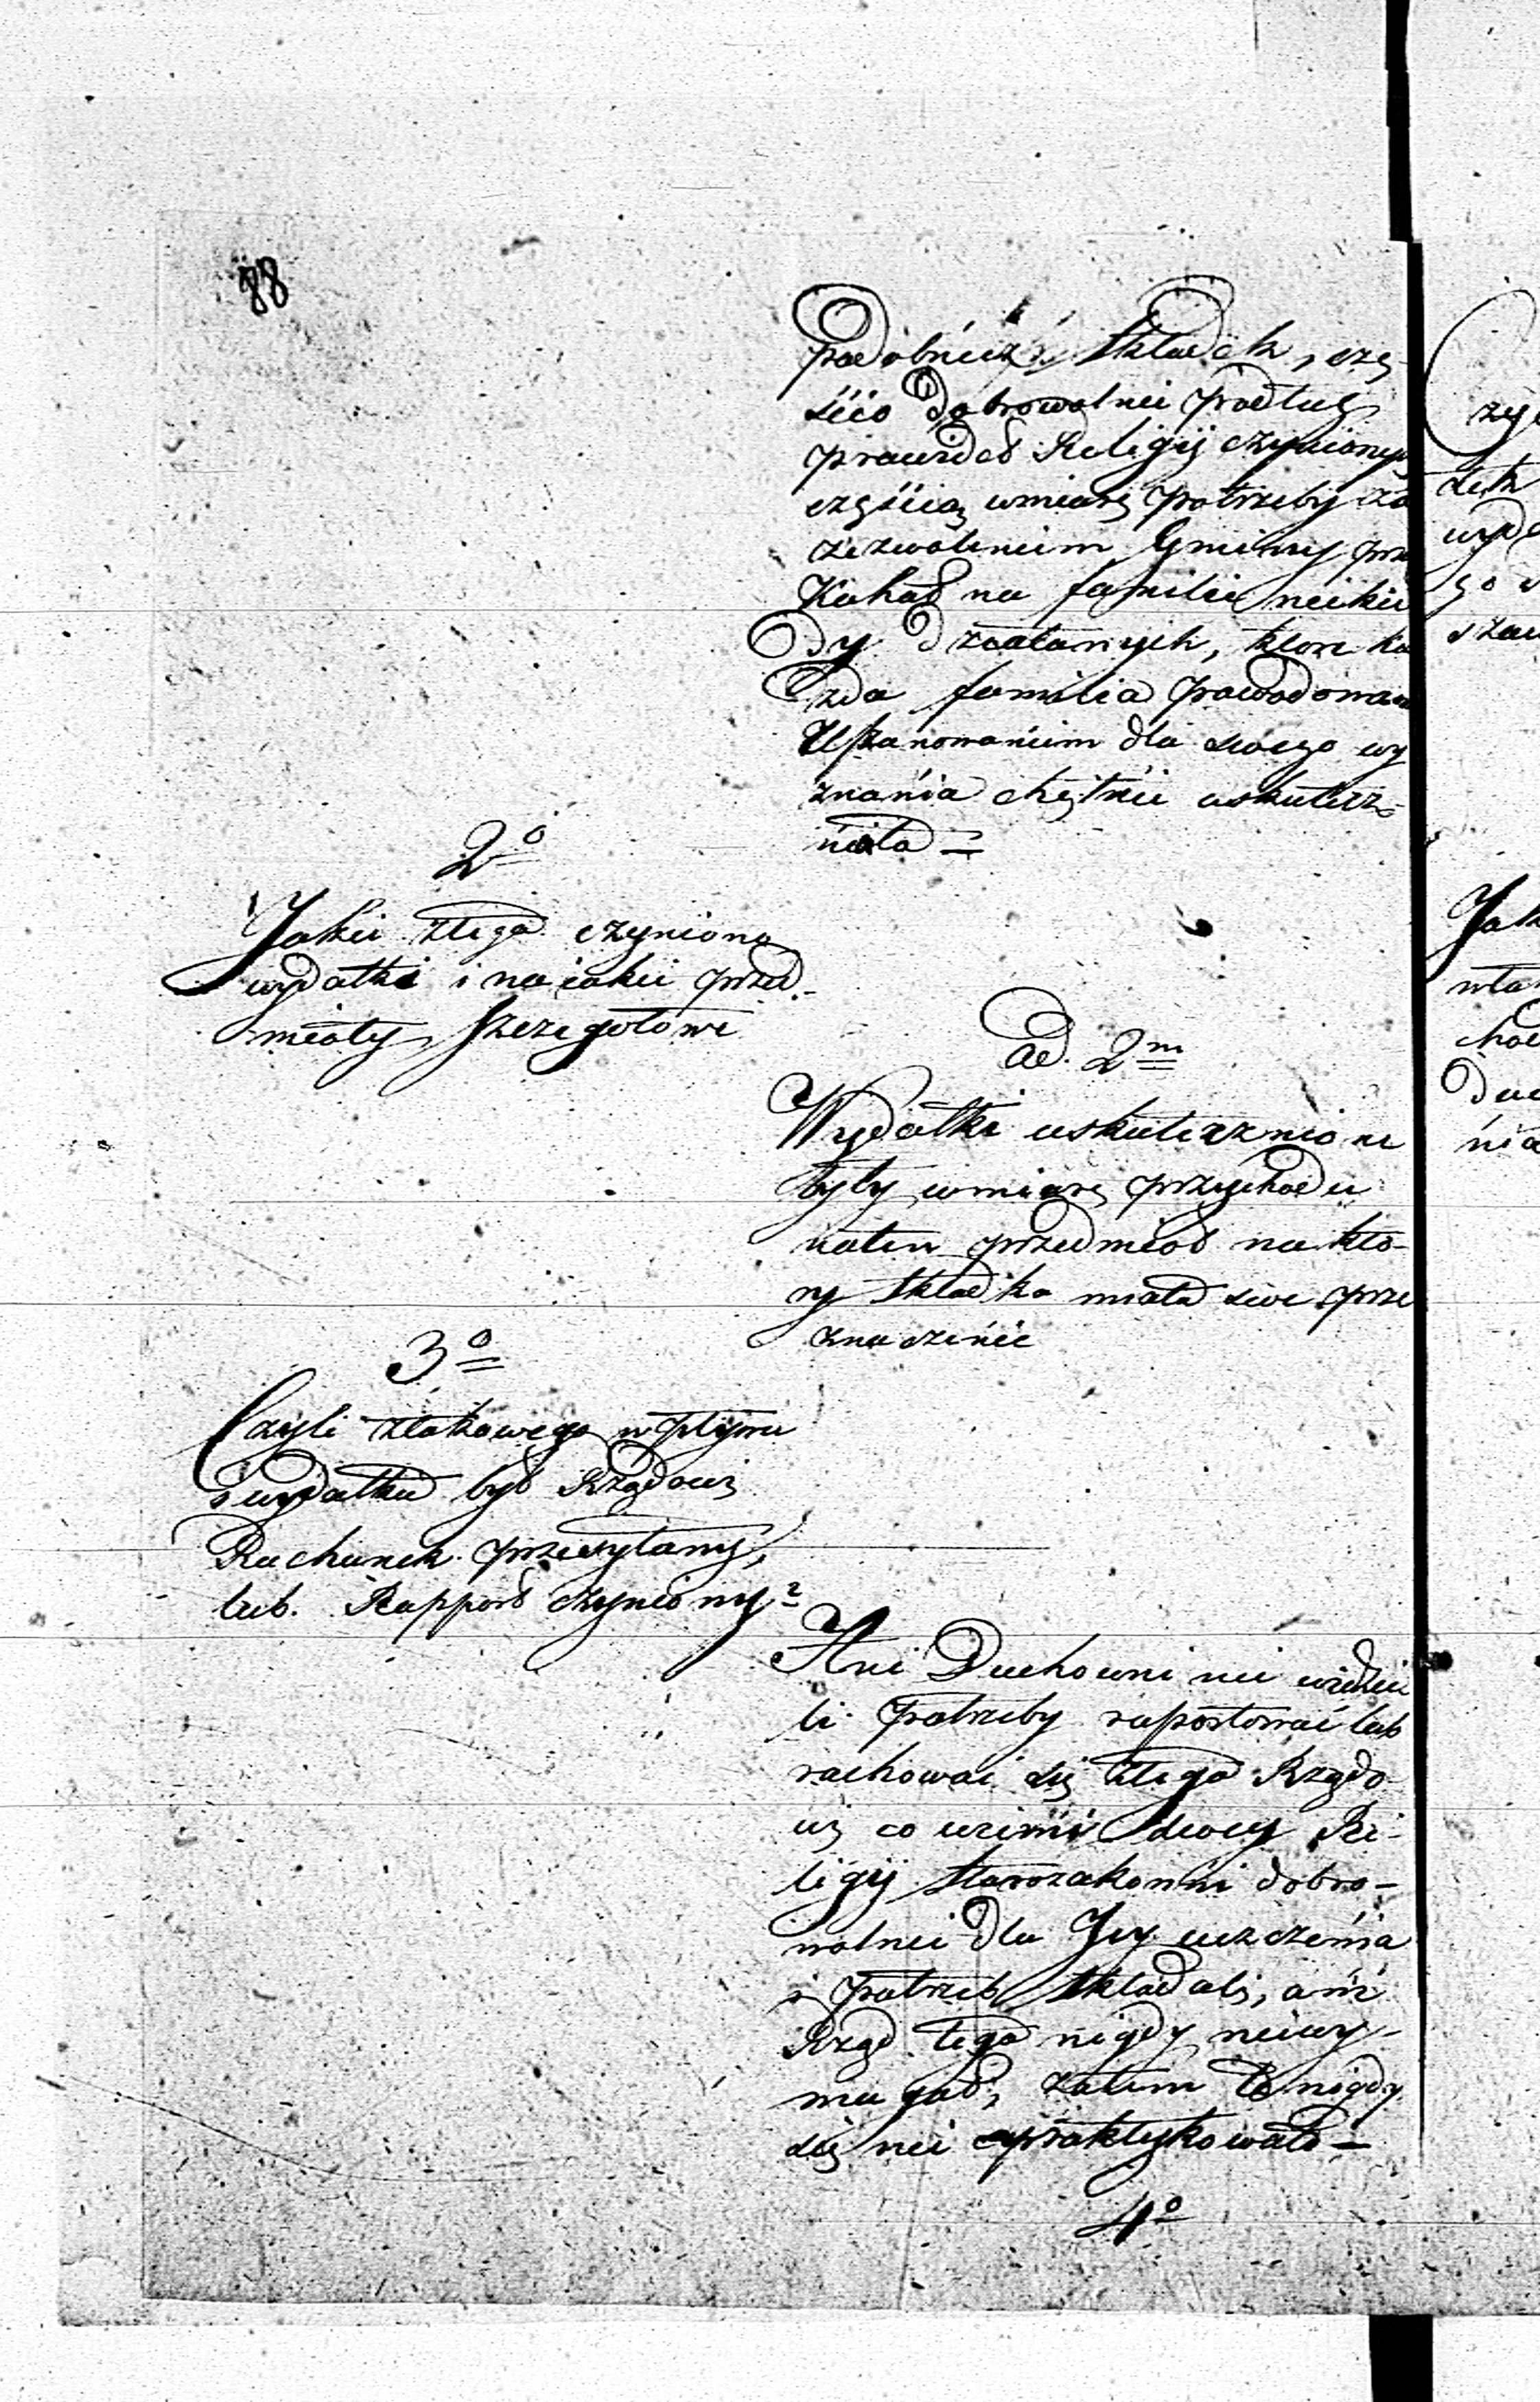 88
podobnież składek, czę-
ścio dobrowolnie podług
prawideł Religij czynionych
częścią wmiarę potrzeby za
zezwoleniem Gminy prze
Kahał na familie niekie
dy działanych, które ka
zda familia powodowana
Uszanowaniem dla swego wy
znania chętnie uskutecz-
niała =
2º
Jakie ztego czyniono
wydatki i na iakie przed-
mioty szczegółowe
ad. 2m
Wydatki uskutecznione
były wmiarę przychodu
naten przedmiot na któ-
ry składka miała swe prze
znaczenie
3º
Czyli ztakowego wpływu
i wydatku był Rządowi
Rachunek przesyłany,
lub. Rapport czyniony?
Ani Duchowni nie widzie
li potrzeby raportować lub
rachować się ztego Rządo-
wi co wimie swoiey Re-
ligij starozakonni dobro-
wolnie dla Jey uczczenia
i potrzeb składali, ani
Rząd tego nigdy niewy-
magał, zatem to nigdy
się nie praktykowało =
4º